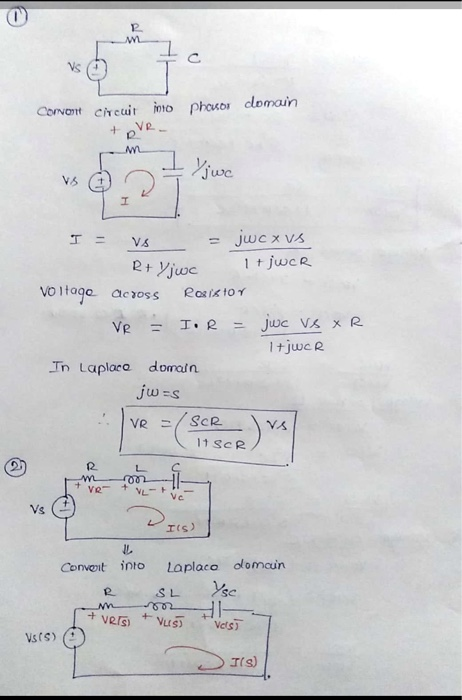 ①
R
C
Vs
Convert circuit into phasor domain
+ VR -
R
Vs
1/jwc
I
I = Vs / (R + 1/jwc) = jwc x Vs / (1 + jwcR)
Voltage across Resistor
VR = I • R = jwc Vs / (1+jwcR) x R
In Laplace domain
jw = s
∴ VR = (SCR / (1+SCR)) Vs
②
R L C
+ VR - + VL - + Vc -
Vs
I(s)
⇓
Convert into Laplace domain
R SL 1/sc
+ VR(s) - + VL(s) - + Vc(s) -
Vs(s)
I(s)